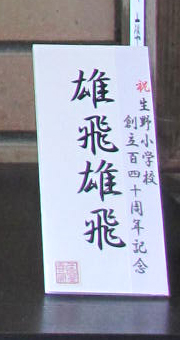 祝 生野小学校
創立百四十周年記念
雄飛雄飛